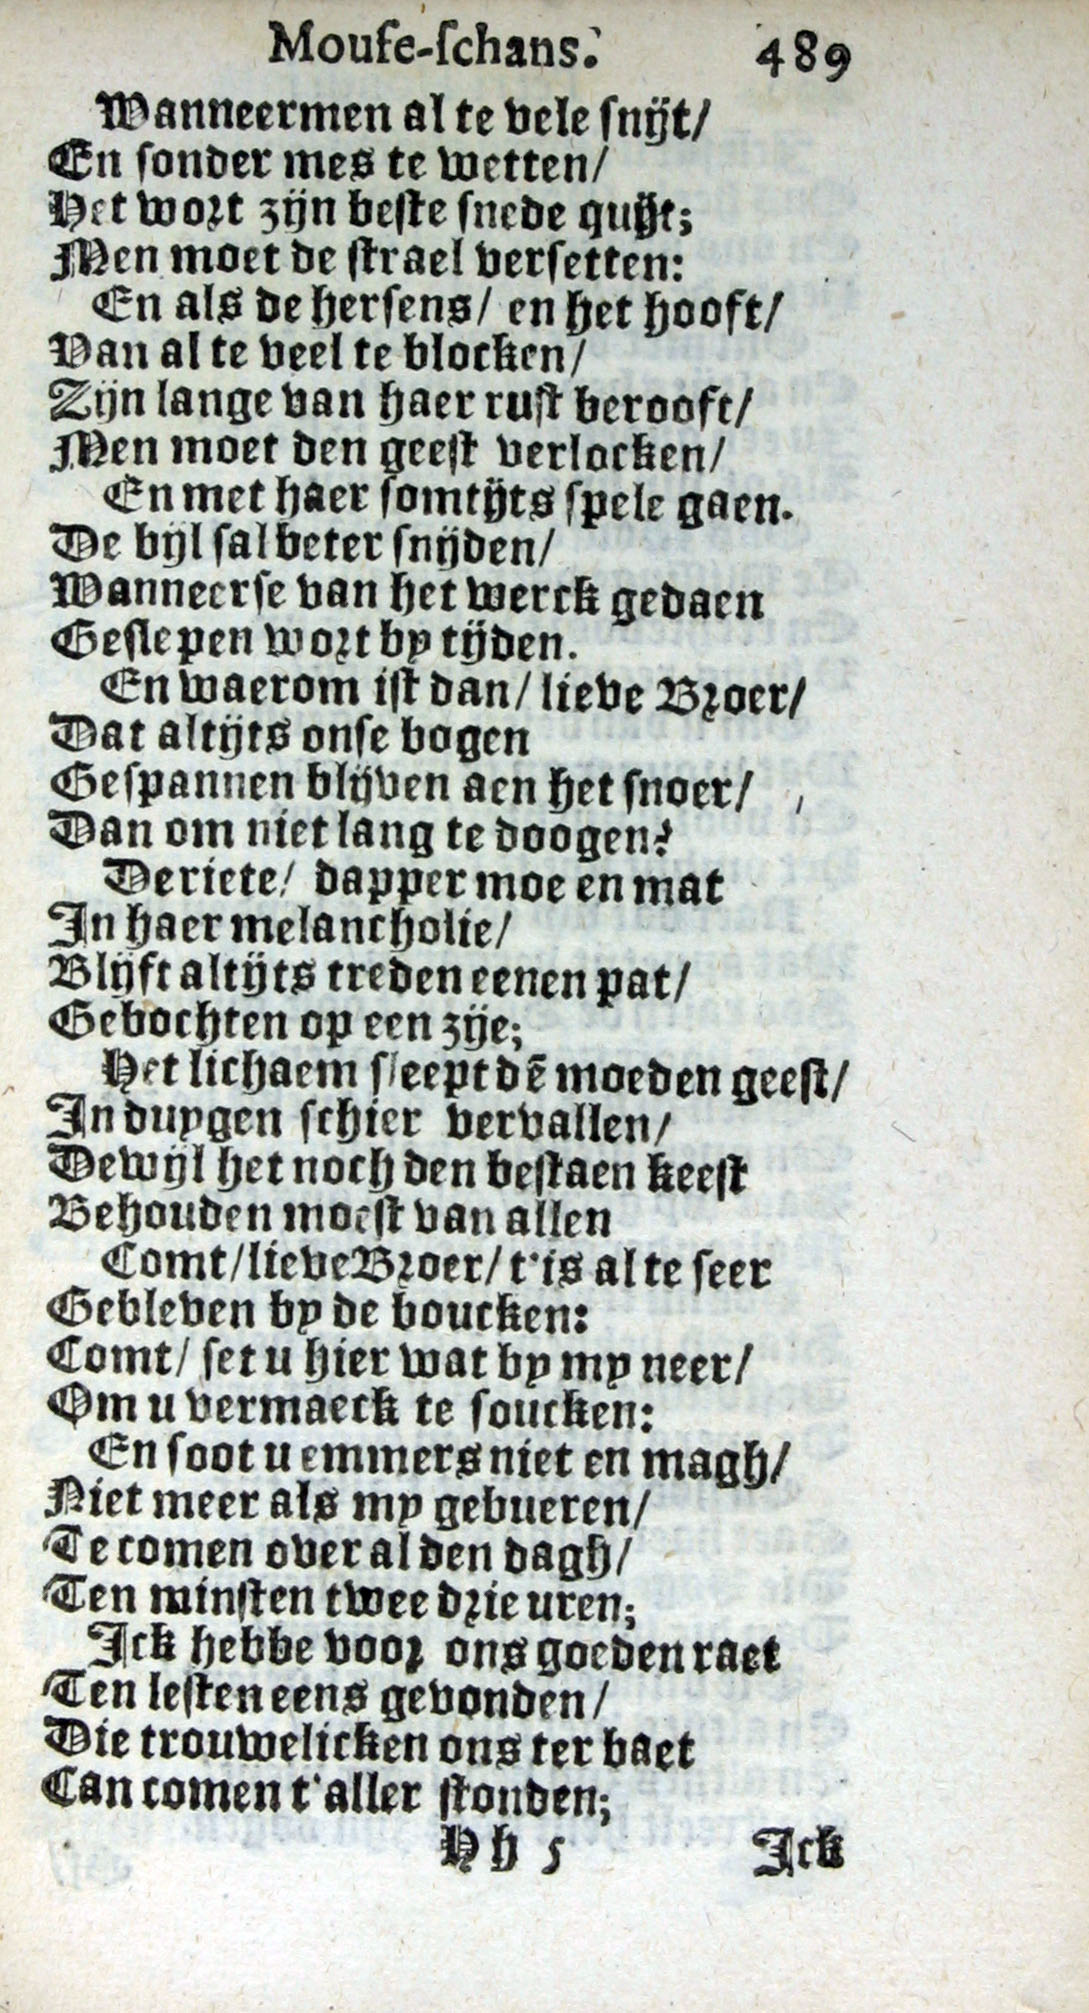 Mouſe-ſchans. 489
Wanneermen al te vele ſnijt/
En ſonder mes te wetten/
Het wort zijn beſte ſnede quijt;
Men moet de ſtrael verſetten:
En als de herſens/ en het hooft/
Van al te veel te blocken/
Zijn lange van haer ruſt berooft/
Men moet den geeſt verlocken/
En met haer ſomtijts ſpele gaen.
De bijl ſal beter ſnijden/
Wanneerſe van het werck gedaen
Geſlepen wort by tijden.
En waerom iſt dan/ lieve Broer/
Dat altijts onſe bogen
Geſpannen blijven aen het ſnoer/
Dan om niet lang te doogen?
Deriete/ dapper moe en mat
In haer melancholie/
Blijft altijts treden eenen pat/
Gebochten op een zije;
Het lichaem ſleept dē moeden geeſt/
In duygen ſchier vervallen/
Dewijl het noch den beſtaen keeſt
Behouden moeſt van allen
Comt/ lieve Broer/ t'is al te ſeer
Gebleven by de boucken:
Comt/ ſet u hier wat by my neer/
Om u vermaeck te ſoucken:
En ſoot u emmers niet en magh/
Niet meer als my gebueren/
Te comen over al den dagh/
Ten minſten twee drie uren;
Ick hebbe voor ons goeden raet
Ten leſten eens gevonden/
Die trouwelicken ons ter baet
Can comen t'aller ſtonden;
Hh 5 Ick